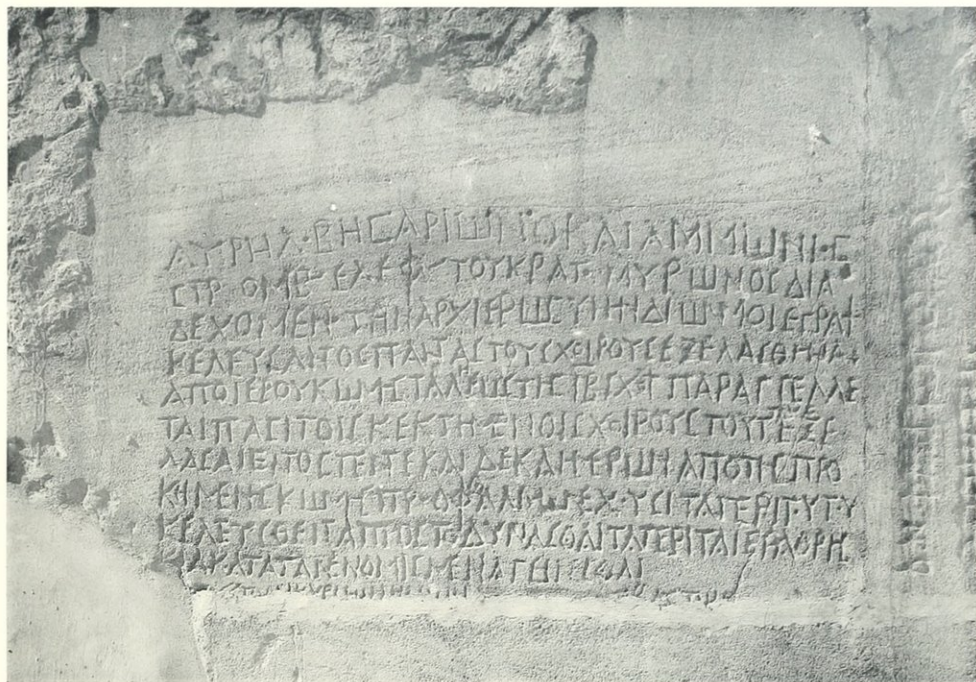 ΑΥΡΗΛ·ΒΗϹΑΡΙШΝ Ο ΚΑΙ ΑΜΜШΝΙ·Ϲ
ϹΤΡ ΟΜΒ ΕΛΕΦ ΤΟΥ ΚΡΑΤ ΜΥΡШΝΟϹ ΔΙΑ
ΔΕΧΟΜΕΝ ΤΗΝ ΑΡΧΙΕΡШϹΥΝΗΝ ΔΙШΝ ΜΟΙ ΕΓΡΑΨ
ΚΕΛΕΥϹΑΝΤΟϹ ΠΑΝΤΑϹ ΤΟΥϹ ΧΟΙΡΟΥϹ ΕΞΕΛΑϹΘΗΝΑΙ
ΑΠΟ ΙΕΡΟΥ ΚШΜ ΤΑΛΜΕШϹ ΤΗϹ ΙΒ ϹΧ ΠΑΡΑΓΓΕΛΛΕ
ΤΑΙ ΠΑϹΙ ΤΟΙϹ ΚΕΚΤΗΜΕΝΟΙϹ ΧΟΙΡΟΥϹ ΤΟΥΤΟΥϹ ΕΞΕ
ΛΑϹΑΙ ΕΝΤΟϹ ΠΕΝΤΕ ΚΑΙ ΔΕΚΑ ΗΜΕΡШΝ ΑΠΟ ΤΗϹ ΠΡΟ
ΚΙΜΕΝΗϹ ΚШΜΗϹ ΠΡ·ΟΦΘΑΛΜШΝ ΕΧ·ΥϹΙ ΤΑ ΠΕΡΙ Τ·ΥΤ·Υ
ΚΕΛΕΥϹΘΕΝΤΑ ΠΡΟϹ ΤΟ ΔΥΝΑϹΘΑΙ ΤΑ ΠΕΡΙ ΤΑ ΙΕΡΑ ΘΡΗϹ
ΚΙΑ ΚΑΤΑ ΤΑ ΝΕΝΟΜΙϹΜΕΝΑ ΓΕΙΝΕϹΘΑΙ